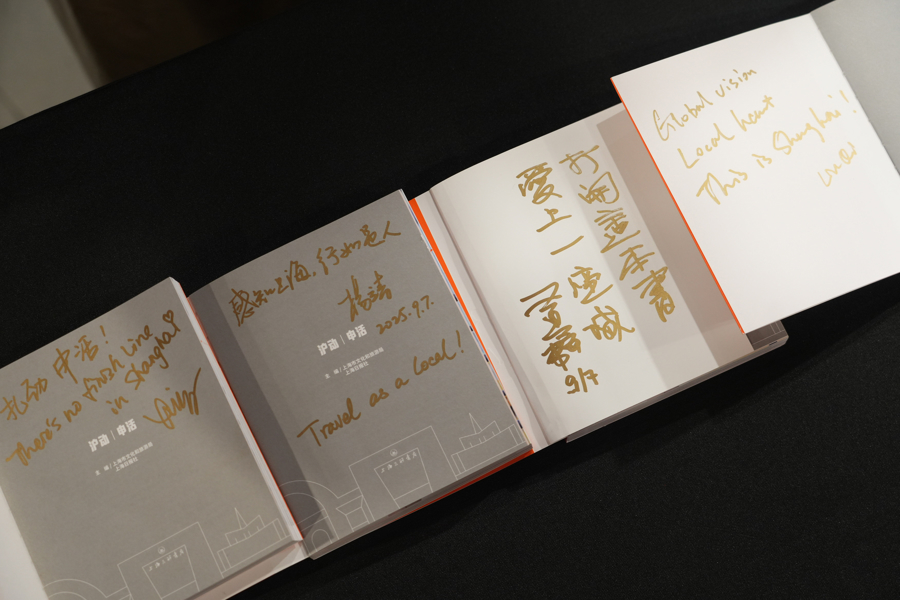 沪动 申活！
There's no finish line
in Shanghai
沪动｜申活
主 编 / 上海市文化和旅游局
上海日报社
感知上海，行如是人
杨靖
2025.9.7.
沪动｜申活
主 编 / 上海市文化和旅游局
上海日报社
Travel as a local!
打開這本書
愛上一座城
9/7
Global vision
Local heart
This is Shanghai!